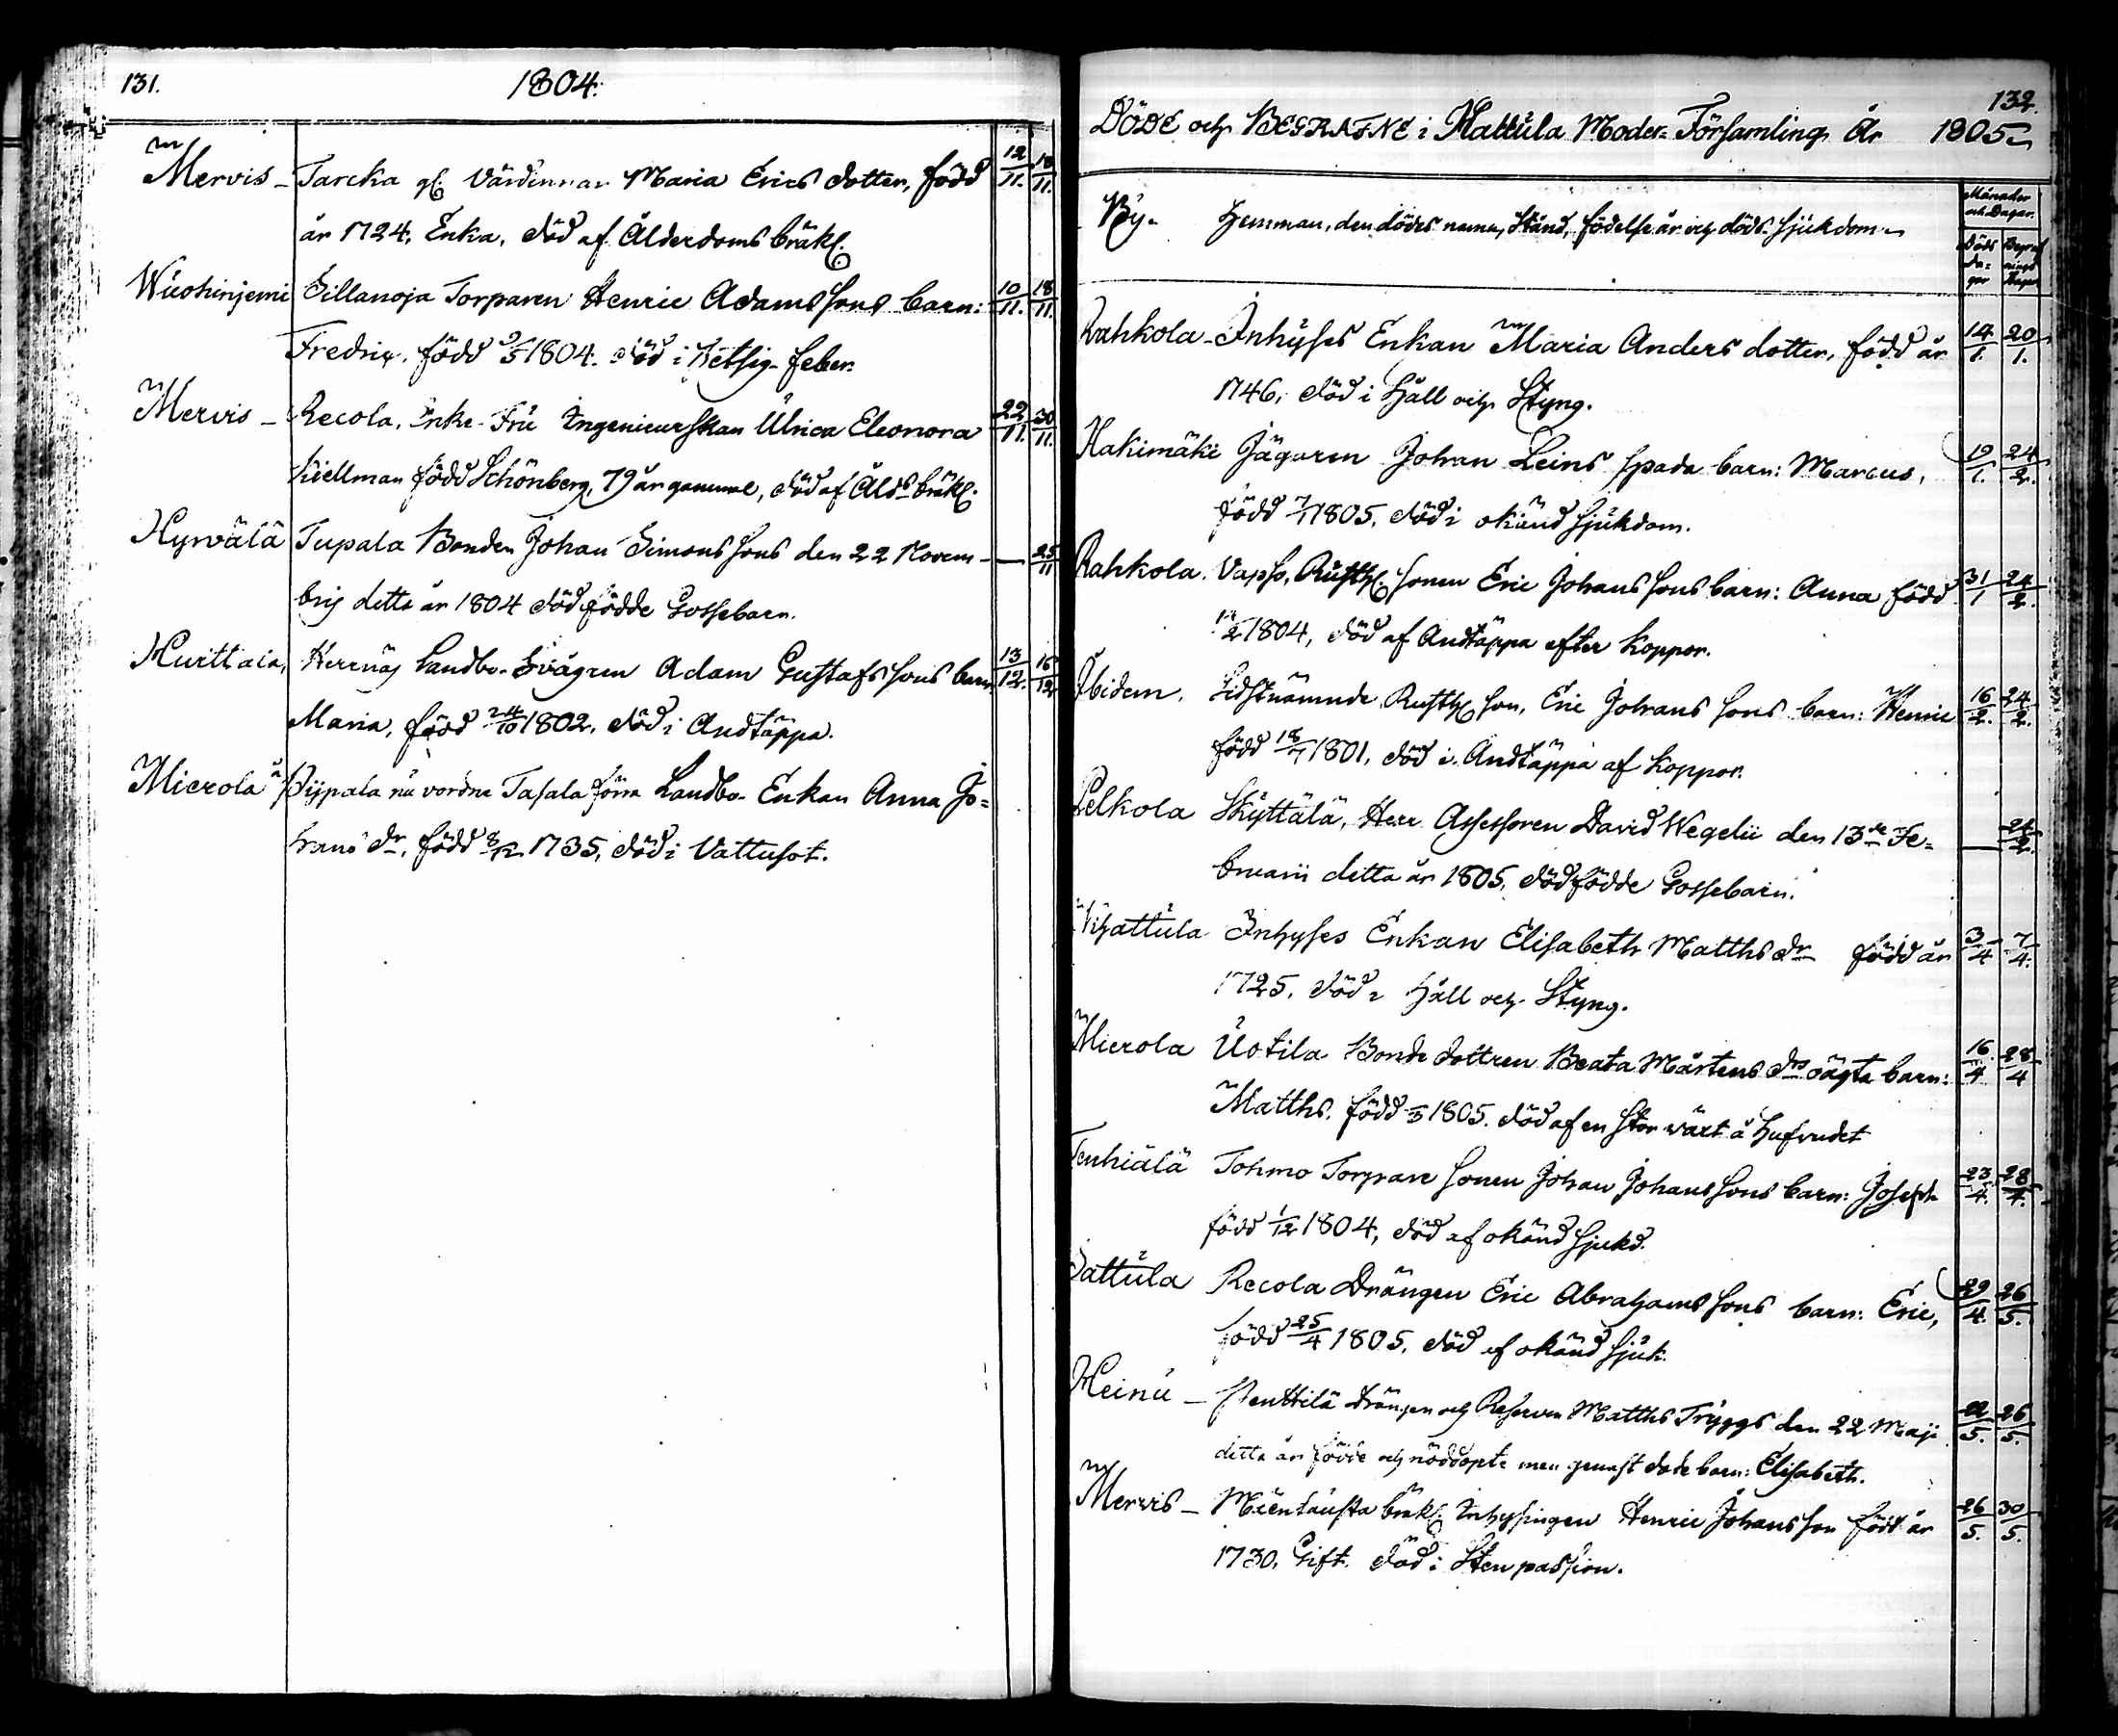 131.
1804.
Mervis - Tarcka gl. Värdinnan Maria Erics dotter, född 12/11. 18/11.
år 1724, Enka, död af Ålderdoms bräkl.
Wuohinjemi Sillanoja Torparen Henric Adams sons barn: 10/11. 18/11.
Fredric, född 1804. död i Hetsig feber.
Mervis - Recola, Enke-Fru Ingenieurskan Ulrica Eleonora 22/11. 30/11.
Kiellman född Schönberg, 79 år gammal, död af Ålds bräkl.
Hyrvälä Tupala Bonden Johan Simons sons den 22 Novem- — 25/11
bris detta år 1804 död födde Gossebarn.
Hurttala, Herrnäs Landbo-Svågren Adam Gustafs sons barn 13/12. 16/12
Maria, född 24/10 1802, död i Andtäppa.
Mierola Pijpala nu vordne Tasala förra Landbo-Enkan Anna Jo=
hans dr, född 8/12 1735, död i Vattusot.
132.
DÖDE och BEGRAFNE i Hattula Moder-Församling År 1805
Månader och Dagar.
By- Hemman, den dödes namn, Stånd, födelse år och döds-sjukdom
Döds Da= gar Begraf nings Dagar
Rahkola - Inhyses Enkan Maria Anders dotter, född år 14/1. 20/1.
1746, död i Håll och Styng.
Hakimäki Jägaren Johan Leins späda barn: Marcus, 19/1. 24/2.
född 7/1 1805, död i okänd sjukdom.
Rahkola. Rusth. sonen Eric Johans sons barn: Anna född 31/1 24/2.
1804, död af Andtäppa efter Koppor.
Ibidem, Sidstnämnde Rusth. son, Eric Johans sons barn: Henric 16/2. 24/2.
född 1801, död i Andtäppa af Koppor.
Pelkola Skyttälä, Herr Assessoren David Wegelii den 13de Fe= — 24/2.
bruarii detta år 1805, död födde Gossebarn.
Inhyses Enkan Elisabeth Matths dr född år 3/4 7/4.
1725, död i Håll och Styng.
Mierola Uotila Bonde dottren Beata Mårtens drs oägta barn: 16/4 28/4
Matths. född 1805. död af en stor wäxt å hufvudet
Tenhiälä Tohmo Torpare sonen Johan Johans sons barn: Joseph 23/4. 28/4.
född 1/12 1804, död af okänd sjukd.
Sattula Recola Drängen Eric Abrahams sons barn: Eric, 29/4. 26/5.
född 25/4 1805, död af okänd sjuk.
Heinu - Penttilä Drängen och Reserven Matths Tryggs den 22 Maji 22/5. 26/5.
detta år födde och nöddöpte men genast döde barn: Elisabeth.
Mervis - bräkl. Inhysingen Henric Johans son född år 26/5. 30/5.
1730, Gift. död i Sten passion.